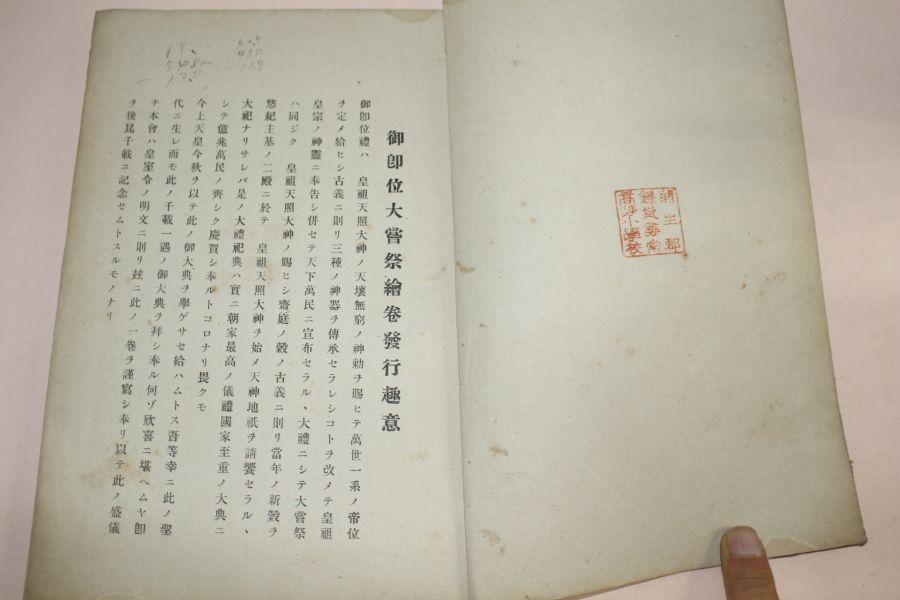 蒲生郡
鎌掛尋常
高等小學校
御卽位大嘗祭繪卷發行趣意
御卽位禮ハ　皇祖天照大神ノ天壤無窮ノ神勅ヲ賜ヒテ萬世一系ノ帝位
ヲ定メ給ヒシ古義ニ則リ三種ノ神器ヲ傳承セラレシコトヲ改メテ皇祖
皇宗ノ神靈ニ奉告シ併セテ天下萬民ニ宣布セラルヽ大禮ニシテ大嘗祭
ハ同ジク　皇祖天照大神ノ賜ヒシ齋庭ノ穀ノ古義ニ則リ當年ノ新穀ヲ
悠紀主基ノ二殿ニ於テ　皇祖天照大神ヲ始メ天神地祇ヲ請饗セラルヽ
大祀ナリサレバ是ノ大禮祀典ハ實ニ朝家最高ノ儀禮國家至重ノ大典ニ
シテ億兆萬民ノ齊シク慶賀シ奉ルトコロナリ畏クモ
今上天皇今秋ヲ以テ此ノ御大典ヲ擧ゲサセ給ハムトス吾等幸ニ此ノ聖
代ニ生レ而モ此ノ千載一遇ノ御大典ヲ拜シ奉ル何ゾ欣喜ニ堪ヘムヤ卽
チ本會ハ皇室令ノ明文ニ則リ玆ニ此ノ一卷ヲ謹寫シ奉リ以テ此ノ盛儀
ヲ後昆千載ニ記念セムトスルモノナリ